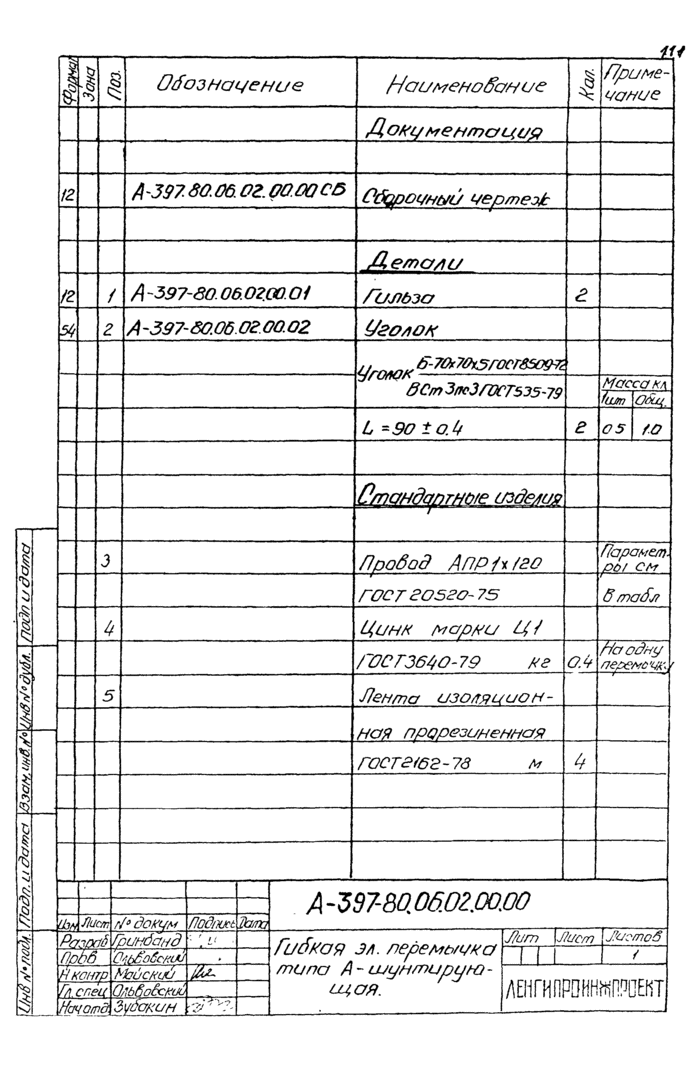 111
Формат Зона Поз. Обозначение Наименование Кол. Приме-
чание
Документация
12 А-397.80.06.02.00.00 СБ Сборочный чертеж
Детали
12 1 А-397-80.06.02.00.01 Гильза 2
54 2 А-397-80.06.02.00.02 Уголок
Уголок Б-70х70х5 ГОСТ 8509-72
ВСт 3пс3 ГОСТ 535-79
Масса кг
1шт Общ.
L = 90 ± 0.4 2 0.5 1.0
Стандартные изделия
3 Провод АПР 1х120 Парамет-
ры см
ГОСТ 20520-75 в табл
4 Цинк марки Ц1
ГОСТ 3640-79 кг 0.4 На одну
перемычку
5 Лента изоляцион-
ная прорезиненная
ГОСТ 2162-78 м 4
Инв № подл. Подп. и дата Взам. инв. № Инв № дубл. Подп и дата
А-397-80.06.02.00.00
Изм Лист № докум Подпись Дата
Разраб Гринбанд
Пров Ольвовский
Н контр Майский
Гл. спец Ольвовский
Нач отд Зубакин
Гибкая эл. перемычка
типа А-шунтирую-
щая.
Лит Лист Листов
1
ЛЕНГИПРОИНЖПРОЕКТ